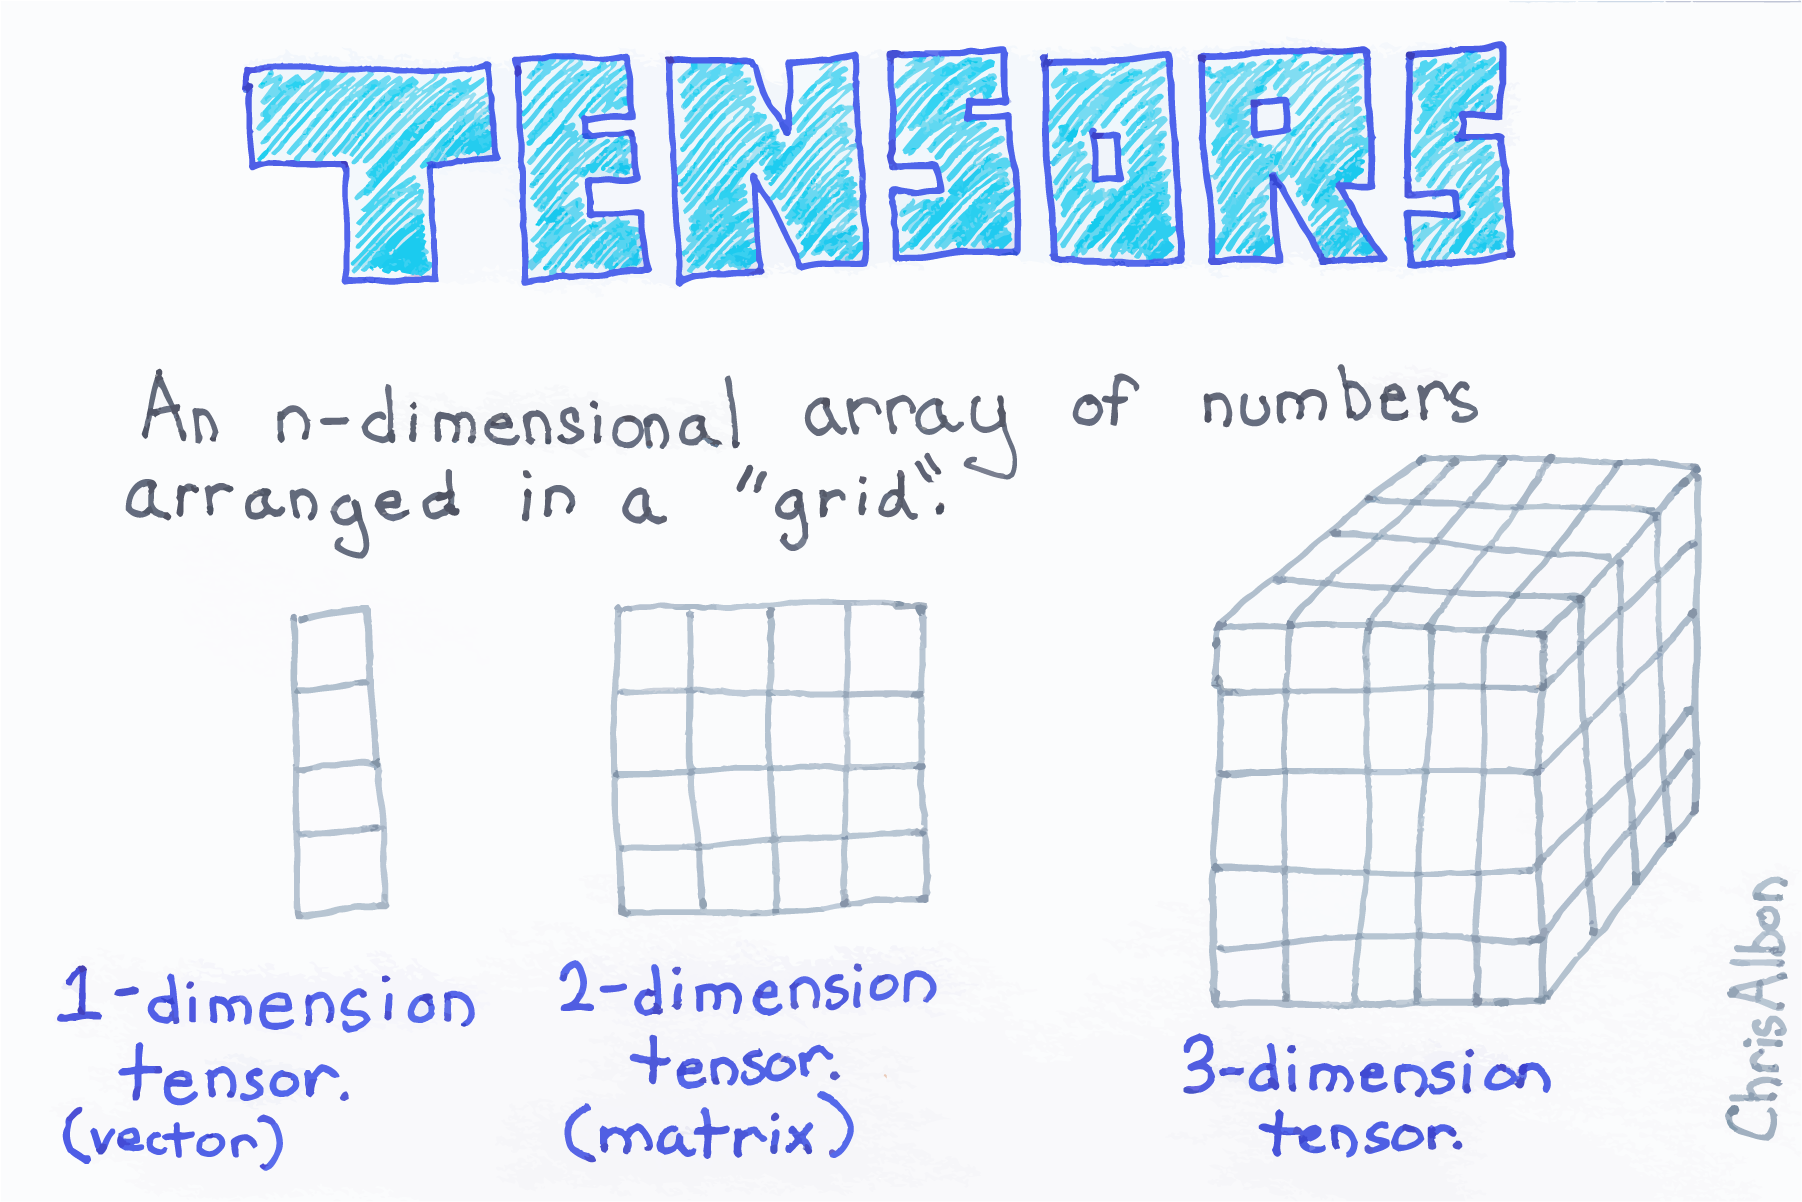 TENSORS
An n-dimensional array of numbers
arranged in a "grid".
1-dimension
tensor.
(vector)
2-dimension
tensor.
(matrix)
3-dimension
tensor.
Chris Albon